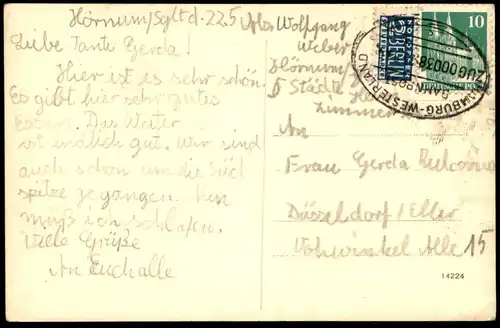 Hörnum/Sylt d. 22.5
Liebe Tante Gerda!
Hier ist es sehr schön.
Es gibt hier sehr gutes
Essen. Das Wetter
ist endlich gut. Wir sind
auch schon um die Süd
spitze gegangen. Nun
muß ich schlafen.
Viele Grüße
An Euch alle
Abs. Wolfgang
Weber
Hörnum/
5 Städte
Zimmer
An
Frau Gerda
Düsseldorf/Eller
Vohwinkel Alle 15
NOTOPFER
2 BERLIN
10
DEUTSCHE POST
HAMBURG-WESTERLAND
BAHNPOST
ZUG 00038
14224